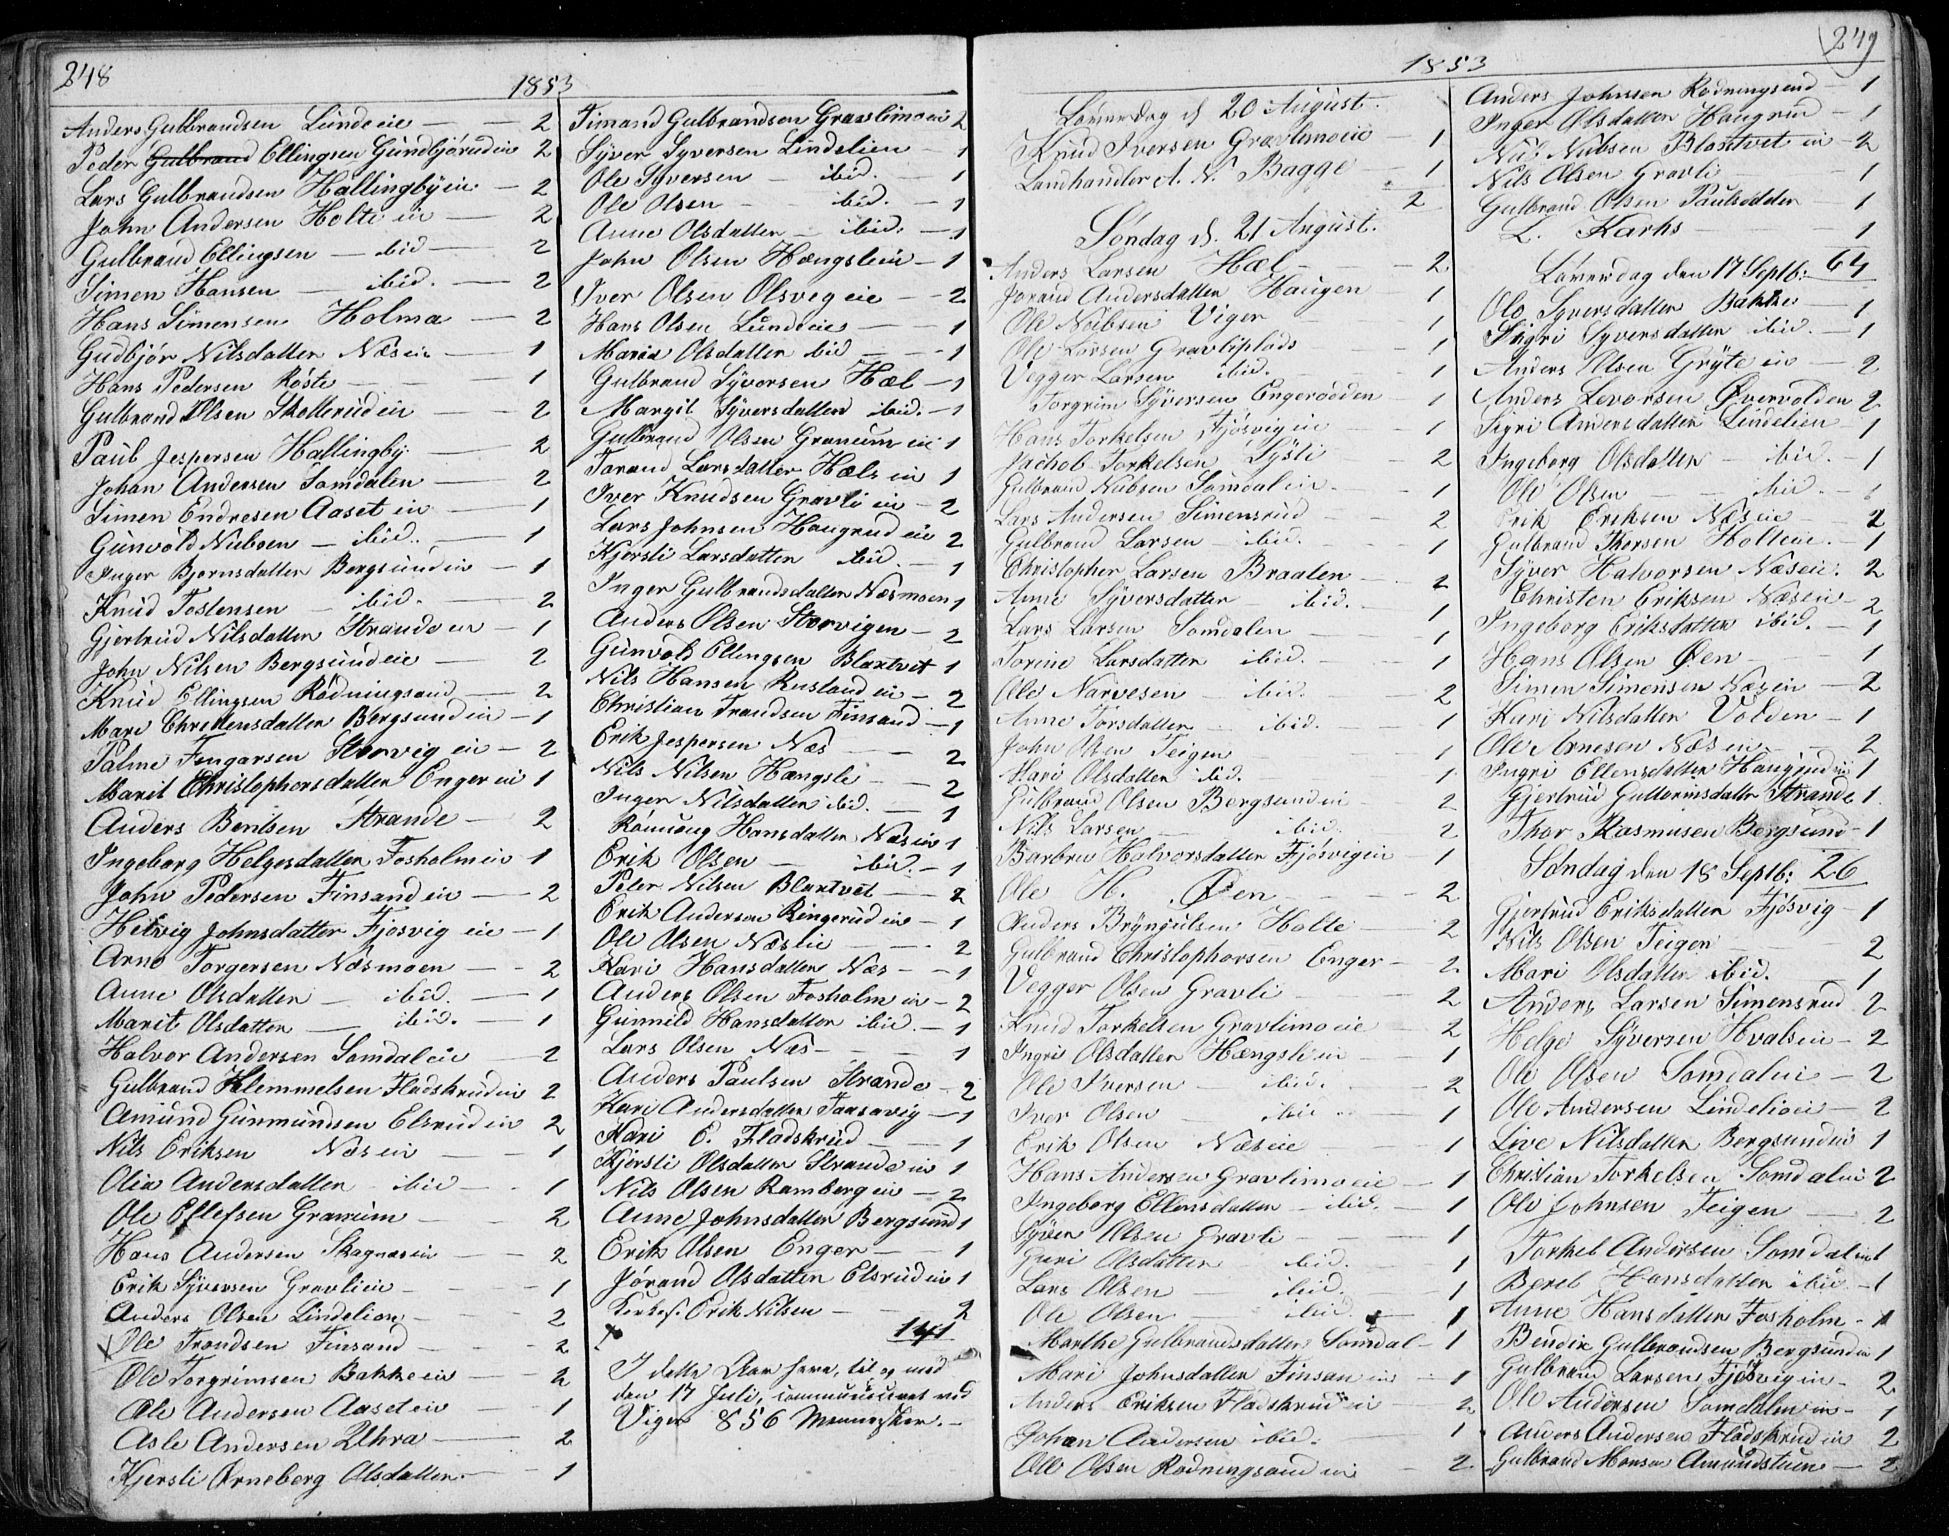 248
1853
Anders Gulbrandsen Lundeie — 2
Peder Gulbrand Ellingsen Gundbjørudeie 2
Lars Gulbrandsen Hallingbyeie — 2
John Andersen Holteeie — 2
Gulbrand Ellingsen — ibid — 2
Simen Hansen — ibid. — 2
Hans Simensen Holma — 2
Gudbjør Nilsdatter Næseie — 1
Hans Pedersen Røste — 1
Gulbrand Olsen Skollerudeie — 2
Paul Jespersen Hallingby — 2
Johan Andersen Somdalen — 2
Simen Endresen Aaseteie — 1
Gunvold Nielsen — ibid. — 1
Inger Bjørnsdatter Bergsundeie — 1
Knud Tostensen — ibid. — 2
Gjertrud Nilsdatter Strandeeie — 1
John Nilsen Bergsundeie — 2
Knud Ellingsen Rødningsand — 2
Mari Christensdatter Bergsundeie — 1
Palme Fingarsen Storvigeie — 2
Marit Christophersdatter Engereie 1
Anders Bentsen Strande — 2
Ingeborg Helgesdatter Fosholmeie — 1
John Pedersen Finsandeie — 2
Helvig Johnsdatter Fjøsvig eie — 1
Arne Torgersen Næsmoen — 2
Anne Olsdatter — ibid. — 1
Marit Olsdatter — ibid. — 1
Halvor Andersen Somdaleie 2
Gulbrand Klemmetsen Fladskrudeie 2
Amund Gunmundsen Elsrudeie 2
Nils Eriksen Næseie — 1
Olia Andersdatter ibid — 1
Ole Ellefsen Granum — 2
Hans Andersen Skagnæseie — 2
Erik Syversen Gravlieie — 1
Anders Olsen Lindelien — 2
Ole Trondsen Finsand — 2
Ole Torgrimsen Bakkeeie — 2
Ole Andersen Aaseteie — 1
Asle Andersen Uhra — 2
Kjersti Arneberg Olsdatter — 1
Timand Gulbrandsen Gravlimoeie 2
Syver Syversen Lindelien — 1
Ole Syversen — ibid. — 1
Ole Olsen — ibid. — 1
Anne Olsdatter — ibid. — 1
John Olsen Hængsleeie — 1
Iver Olsen Olsvigeie — 2
Hans Olsen Lundeeie — 1
Maria Olsdatter ibid — 1
Gulbrand Syversen Hæl — 1
Margit Syversdatter ibid. — 1
Gulbrand Olsen Granumeie 1
Torand Larsdatter Hælseie 1
Iver Knudsen Gravlieie — 2
Lars Johnsen Haugrudeie 2
Kjersti Larsdatter ibid. — 1
Inger Gulbrandsdatter Næsmoen 1
Anders Olsen Storvigen — 2
Gunvold Ellingsen Blaxtvet 1
Nils Hansen Ruslandeie — 2
Christian Trandsen Finsand — 1
Erik Jespersen Næs — 2
Nils Nilsen Hængsle — 2
Inger Nilsdatter ibid. — 1
Rønnoug Hansdatter Næseie 1
Erik Olsen — ibid. — 1
Peter Nilsen Blaxtvet — 2
Erik Andersen Ringerudeie — 1
Ole Olsen Næseie — 2
Kari Hansdatter Næs — 1
Anders Olsen Fosholmeie — 2
Gunnild Hansdatter ibid. — 1
Lars Olsen Næs — 1
Anders Paulsen Strande — 2
Kari Andersdatter Taasavig — 1
Kari E. Fladskrud — 1
Kjersti Olsdatter Strandeeie 1
Nils Olsen Rambergeie — 2
Anne Johnsdatter Bergsund 1
Erik Olsen Enger — 1
Jørand Olsdatter Elsrudeie 1
Kirkes. Erik Nilsen — 2
141
I dette Aar have, til og med
den 17 Juli, communiceret ved
Viger 856 Mennesker. —
249
1853
Løverdag d. 20 August.
Knud Iversen Gravlimoeie — 1
Landhandler A. N. Bagge 1
2
Søndag d. 21 August.
Anders Larsen Hæl — 2
Jorand Andersdatter Haugen 1
Ole Nubsen Viger 1
Ole Larsen Gravliplads — 1
Vegger Larsen ibid. — 1
Torgrim Syversen Engerødden — 1
Hans Torkelsen Fjøsvigeie — 1
Jachob Torkelsen Lysli — 2
Gulbrand Nubsen Somdaleie — 1
Lars Andersen Simensrud — 2
Gulbrand Larsen — ibid. — 1
Christopher Larsen Braaten — 2
Anne Syversdatter — ibid. — 1
Lars Larsen Somdalen — 1
Torine Larsdatter ibid. — 1
Ole Narvesen — ibid. — 2
Anne Torsdatter — ibid. — 1
John Olsen Teigen — 1
Kari Olsdatter ibid. 1
Gulbrand Olsen Bergsundeie 2
Nils Larsen — ibid. 2
Barbru Halvorsdatter Fjøsvigeie 1
Ole H. Øen — 2
Anders Brynjulsen Holte — 2
Gulbrand Christophersen Enger — 2
Vegger Olsen Gravli — 2
Knud Torkelsen Gravlimoeie — 2
Ingri Olsdatter Hængsleeie — 1
Ole Iversen — ibid. — 2
Iver Olsen — ibid — 1
Erik Olsen Næseie — 1
Hans Andersen Gravlimoeie — 1
Ingeborg Ellensdatter — ibid. — 1
Syver Olsen Gravli — 1
Guri Olsdatter ibid. 1
Lars Olsen ibid. 1
Ole Olsen — ibid — 1
Marthe Gulbrandsdatter Somdal — 1
Mari Johnsdatter Finsandeie — 1
Anders Eriksen Fladskrudeie — 2
Johan Andersen ibid. — 1
Ole Olsen Rødningsandeie — 2
Anders Johnsen Rødningsand — 1
Inger Olsdatter Haugrud — 1
Nub Nubsen Blaxtveteie — 2
Nils Olsen Gravli — 1
Gulbrand Olsen Paulsødden — 1
L. Karhs — 1
64
Løverdag den 17 Septb:
Ole Syversdatter Bakke — 1
Sigri Syversdatter ibid. — 1
Anders Olsen Gryteeie — 2
Anders Levorsen Øvervolden 2
Sigri Andersdatter Lindelien 1
Ingeborg Olsdatter — ibid. — 1
Ole Olsen — ibid. — 1
Erik Eriksen Næseie — 2
Gulbrand Thorsen Holteeie. — 1
Syver Halvorsen Næseie. 2
Christen Eriksen Næseie — 2
Ingeborg Eriksdatter ibid. — 1
Hans Olsen Øen — 1
Simen Simensen Næseie — 2
Kari Nilsdatter Volden — 1
Ole Arnesen Næseie — 2
Ingri Ellensdatter Haugrudeie 1
Gjertrud Guttormsdatter Strande 1
Thor Rasmusen Bergsund — 1
26
Søndag den 18 Septb:
Gjertrud Eriksdatter Fjøsvig — 1
Nils Olsen Teigen — 2
Mari Olsdatter ibid. 1
Anders Larsen Simensrud 2
Helge Syversen Hvalseie — 2
Ole Olsen Somdaleie — 2
Ole Andersen Lindelieeie — 2
Live Nilsdatter Bergsundeie 1
Christian Torkelsen Somdaleie 2
Ole Johnsen Teigen — 2
Torkel Andersen Somdaleie 1
Beret Hansdatter ibid — 1
Anne Hansdatter Fosholm — 1
Bendix Gulbrandsen Bergsundeie 1
Gulbrand Larsen Fjøsvigeie — 2
Ole Andersen Somdaleneie — 1
Anders Andersen Fladskrudeie 2
Gulbrand Monsen Amundstuen — 2